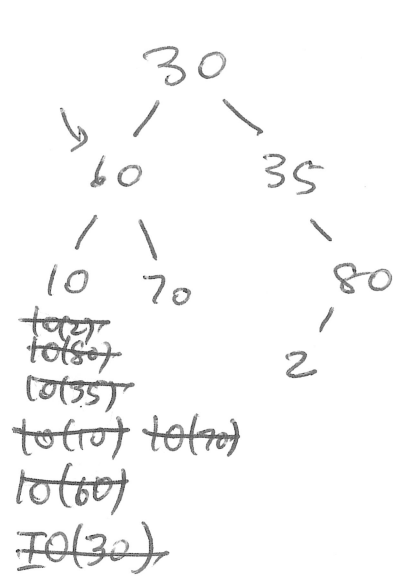 30
60 35
10 70 80
2
IO(2)
IO(80)
IO(35)
IO(10) IO(70)
IO(60)
IO(30)